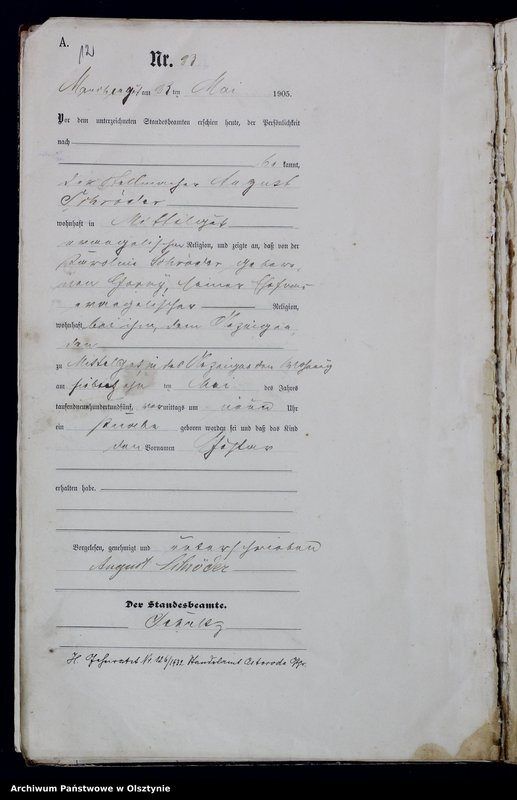 A.
12
Nr.
am ten Mai 1905.
Vor dem unterzeichneten Standesbeamten erschien heute, der Persönlichkeit
nach
be kannt,
der Stellmacher August
Schröder
wohnhaft in Mittelgut
evangelischer Religion, und zeigte an, daß von der
Karoline Schröder gebore-
nen seiner Ehefrau
evangelischer Religion,
wohnhaft bei ihm, dem Anzeigen-
den
zu Mittelgut in des Anzeigenden Wohnung
am siebenzehn ten Mai des Jahres
tausendneunhundertundfünf, vormittags um neun Uhr
ein Knabe geboren worden sei und daß das Kind
den Vornamen Gustav
erhalten habe.
Vorgelesen, genehmigt und unterschrieben
August Schröder
Der Standesbeamte.
Schultz
H Geheiratet Nr. 126/1932 Standesamt Osterode Opr.
Archiwum Państwowe w Olsztynie